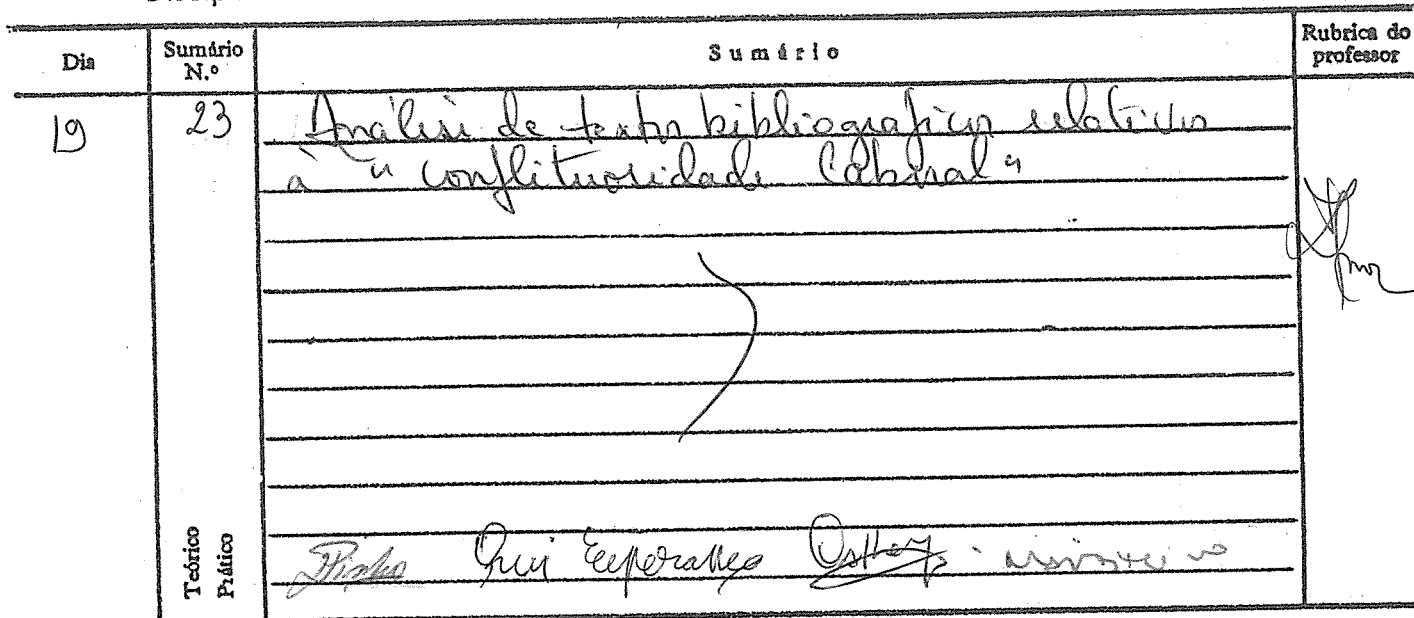 Dia
Sumário N.º
Sumário
Rubrica do professor
19
23
Análise de textos bibliográficos relativos
à "conflituosidade Cabral"
Teórico
Prático
Pinho Rui Esperança